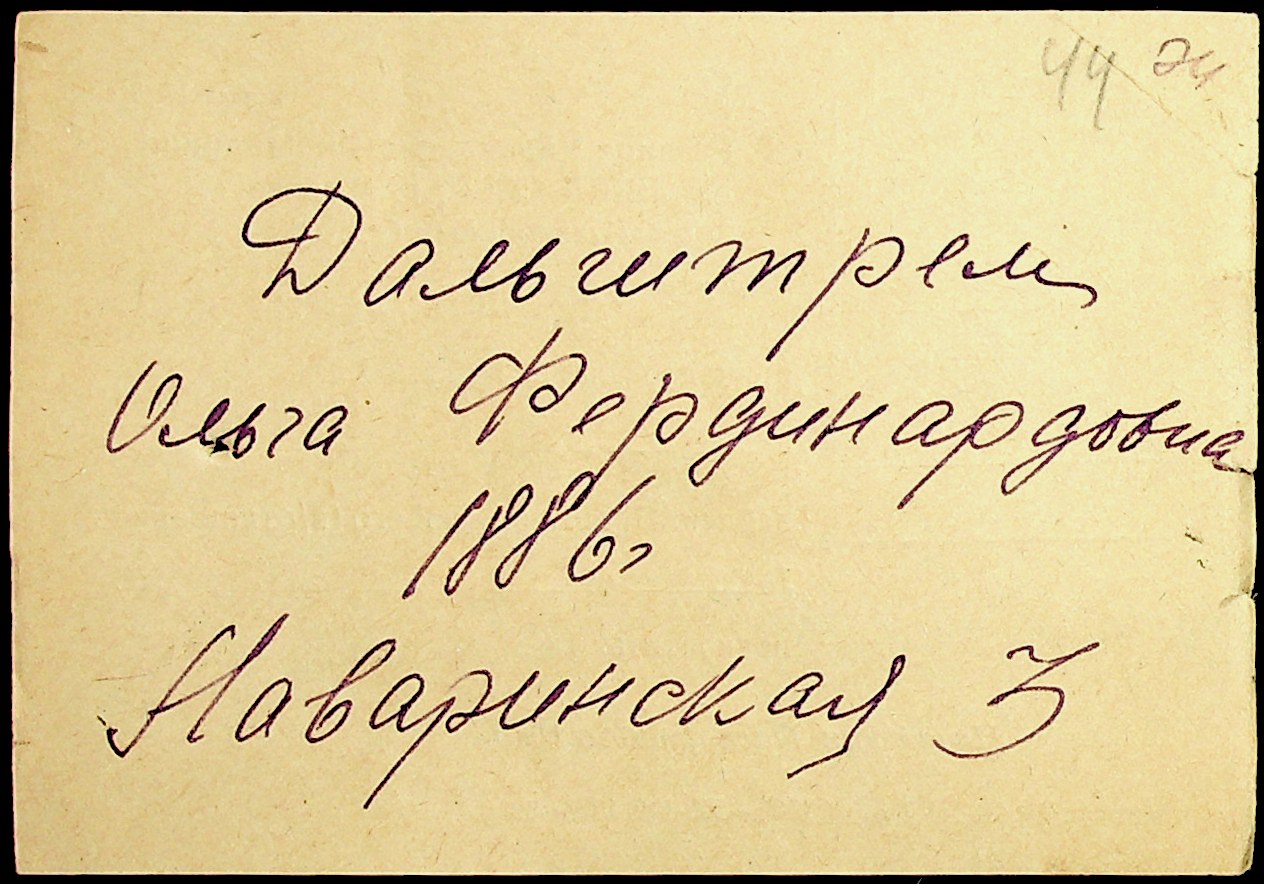 44 24
Дальштрем
Ольга Фердинардовна
1886г
Наваринская 3